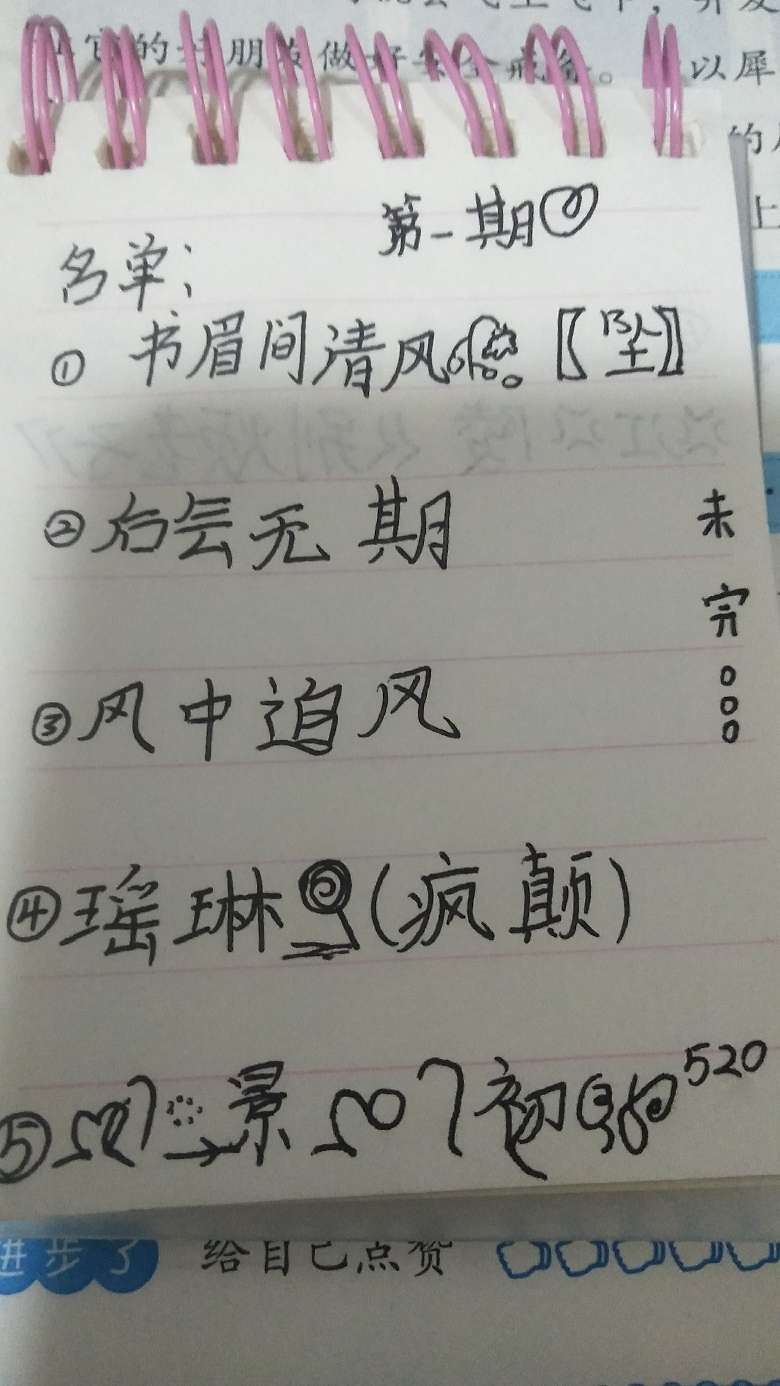 官的 朋友做好安全戒备。
以犀
的
上
第一期
名单;
① 书眉间清风 〖坠〗
②后会无期
未完。。。
③风中追风
④瑶琳(疯颠)
⑤ 景 初 520
进步了 给自己点赞